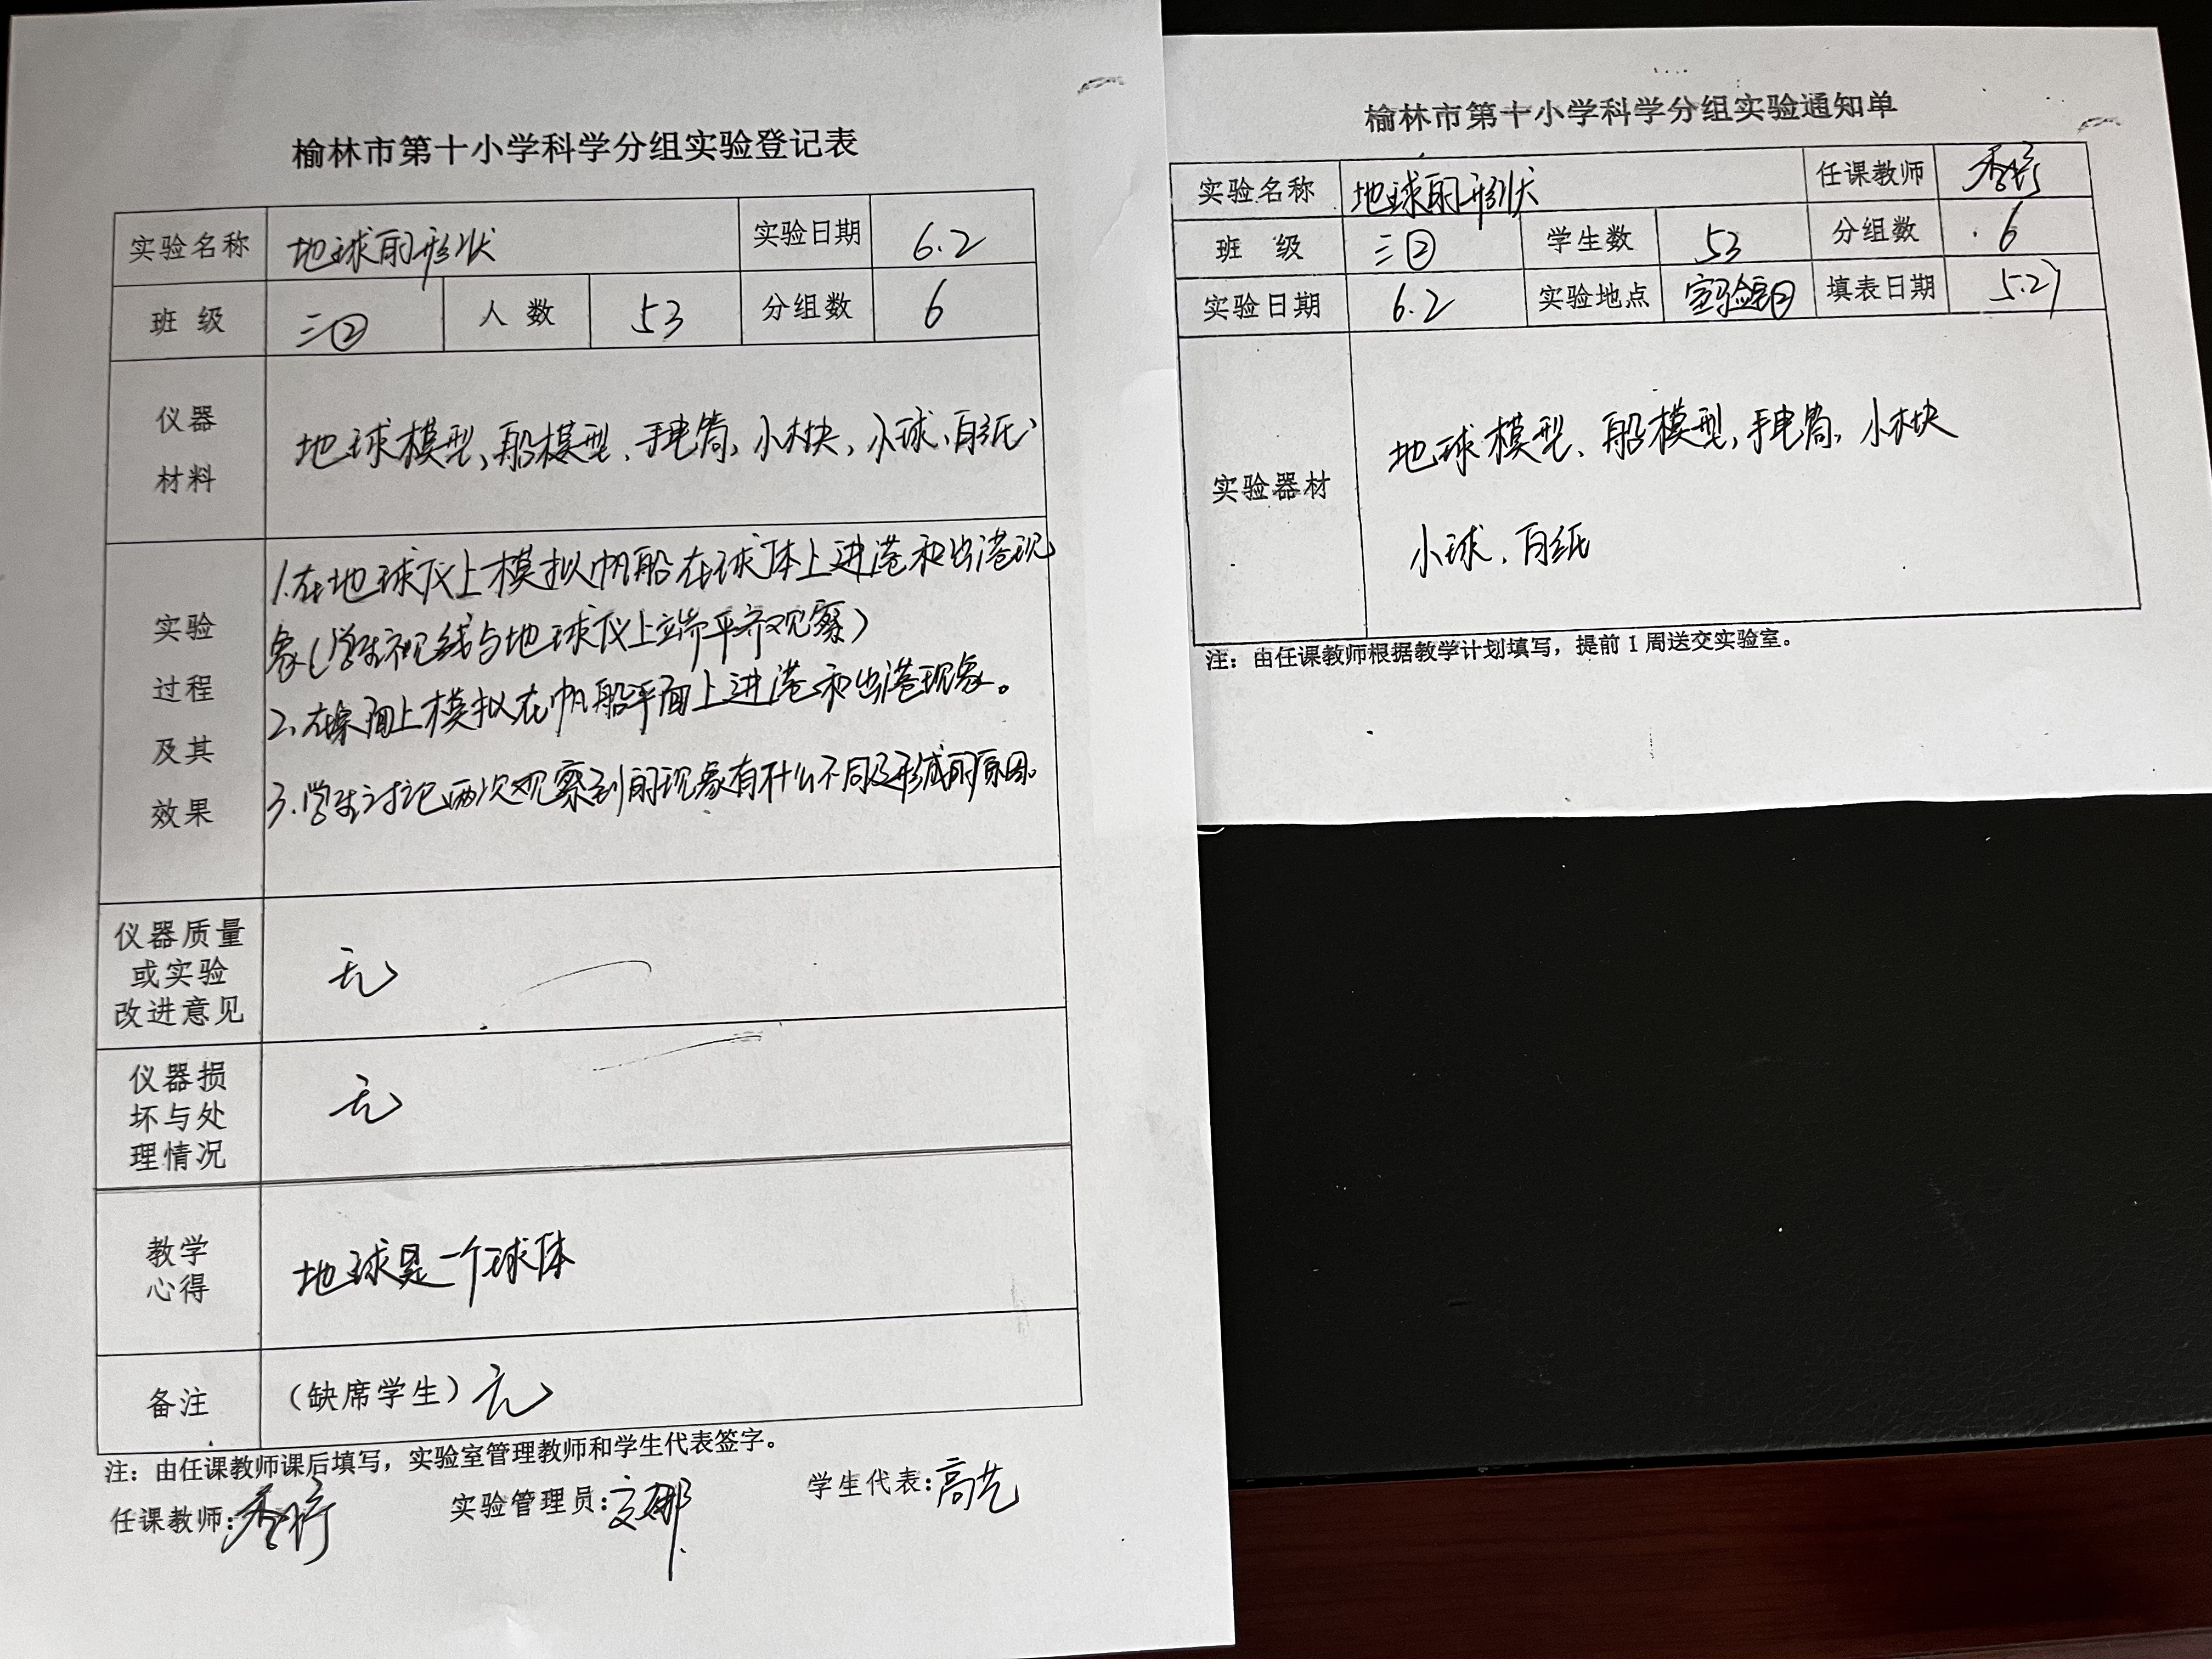 榆林市第十小学科学分组实验登记表
实验名称 地球的形状 实验日期 6.2
班 级 三② 人 数 53 分组数 6
仪器
材料
地球模型、船模型、手电筒、小木块、小球、白纸
实验
过程
及其
效果
1.在地球仪上模拟帆船在球体上进港和出港现
象(学生视线与地球仪上端平齐观察)
2.在桌面上模拟在帆船平面上进港和出港现象。
3.学生讨论两次观察到的现象有什么不同及形成的原因。
仪器质量
或实验
改进意见
无
仪器损
坏与处
理情况
无
教学
心得
地球是一个球体
备注 （缺席学生）无
注：由任课教师课后填写，实验室管理教师和学生代表签字。
任课教师: 实验管理员: 学生代表:高艺
榆林市第十小学科学分组实验通知单
实验名称 地球的形状 任课教师
班 级 三② 学生数 53 分组数 6
实验日期 6.2 实验地点 实验室② 填表日期 5.27
实验器材
地球模型、船模型、手电筒、小木块
小球、白纸
注：由任课教师根据教学计划填写，提前1周送交实验室。